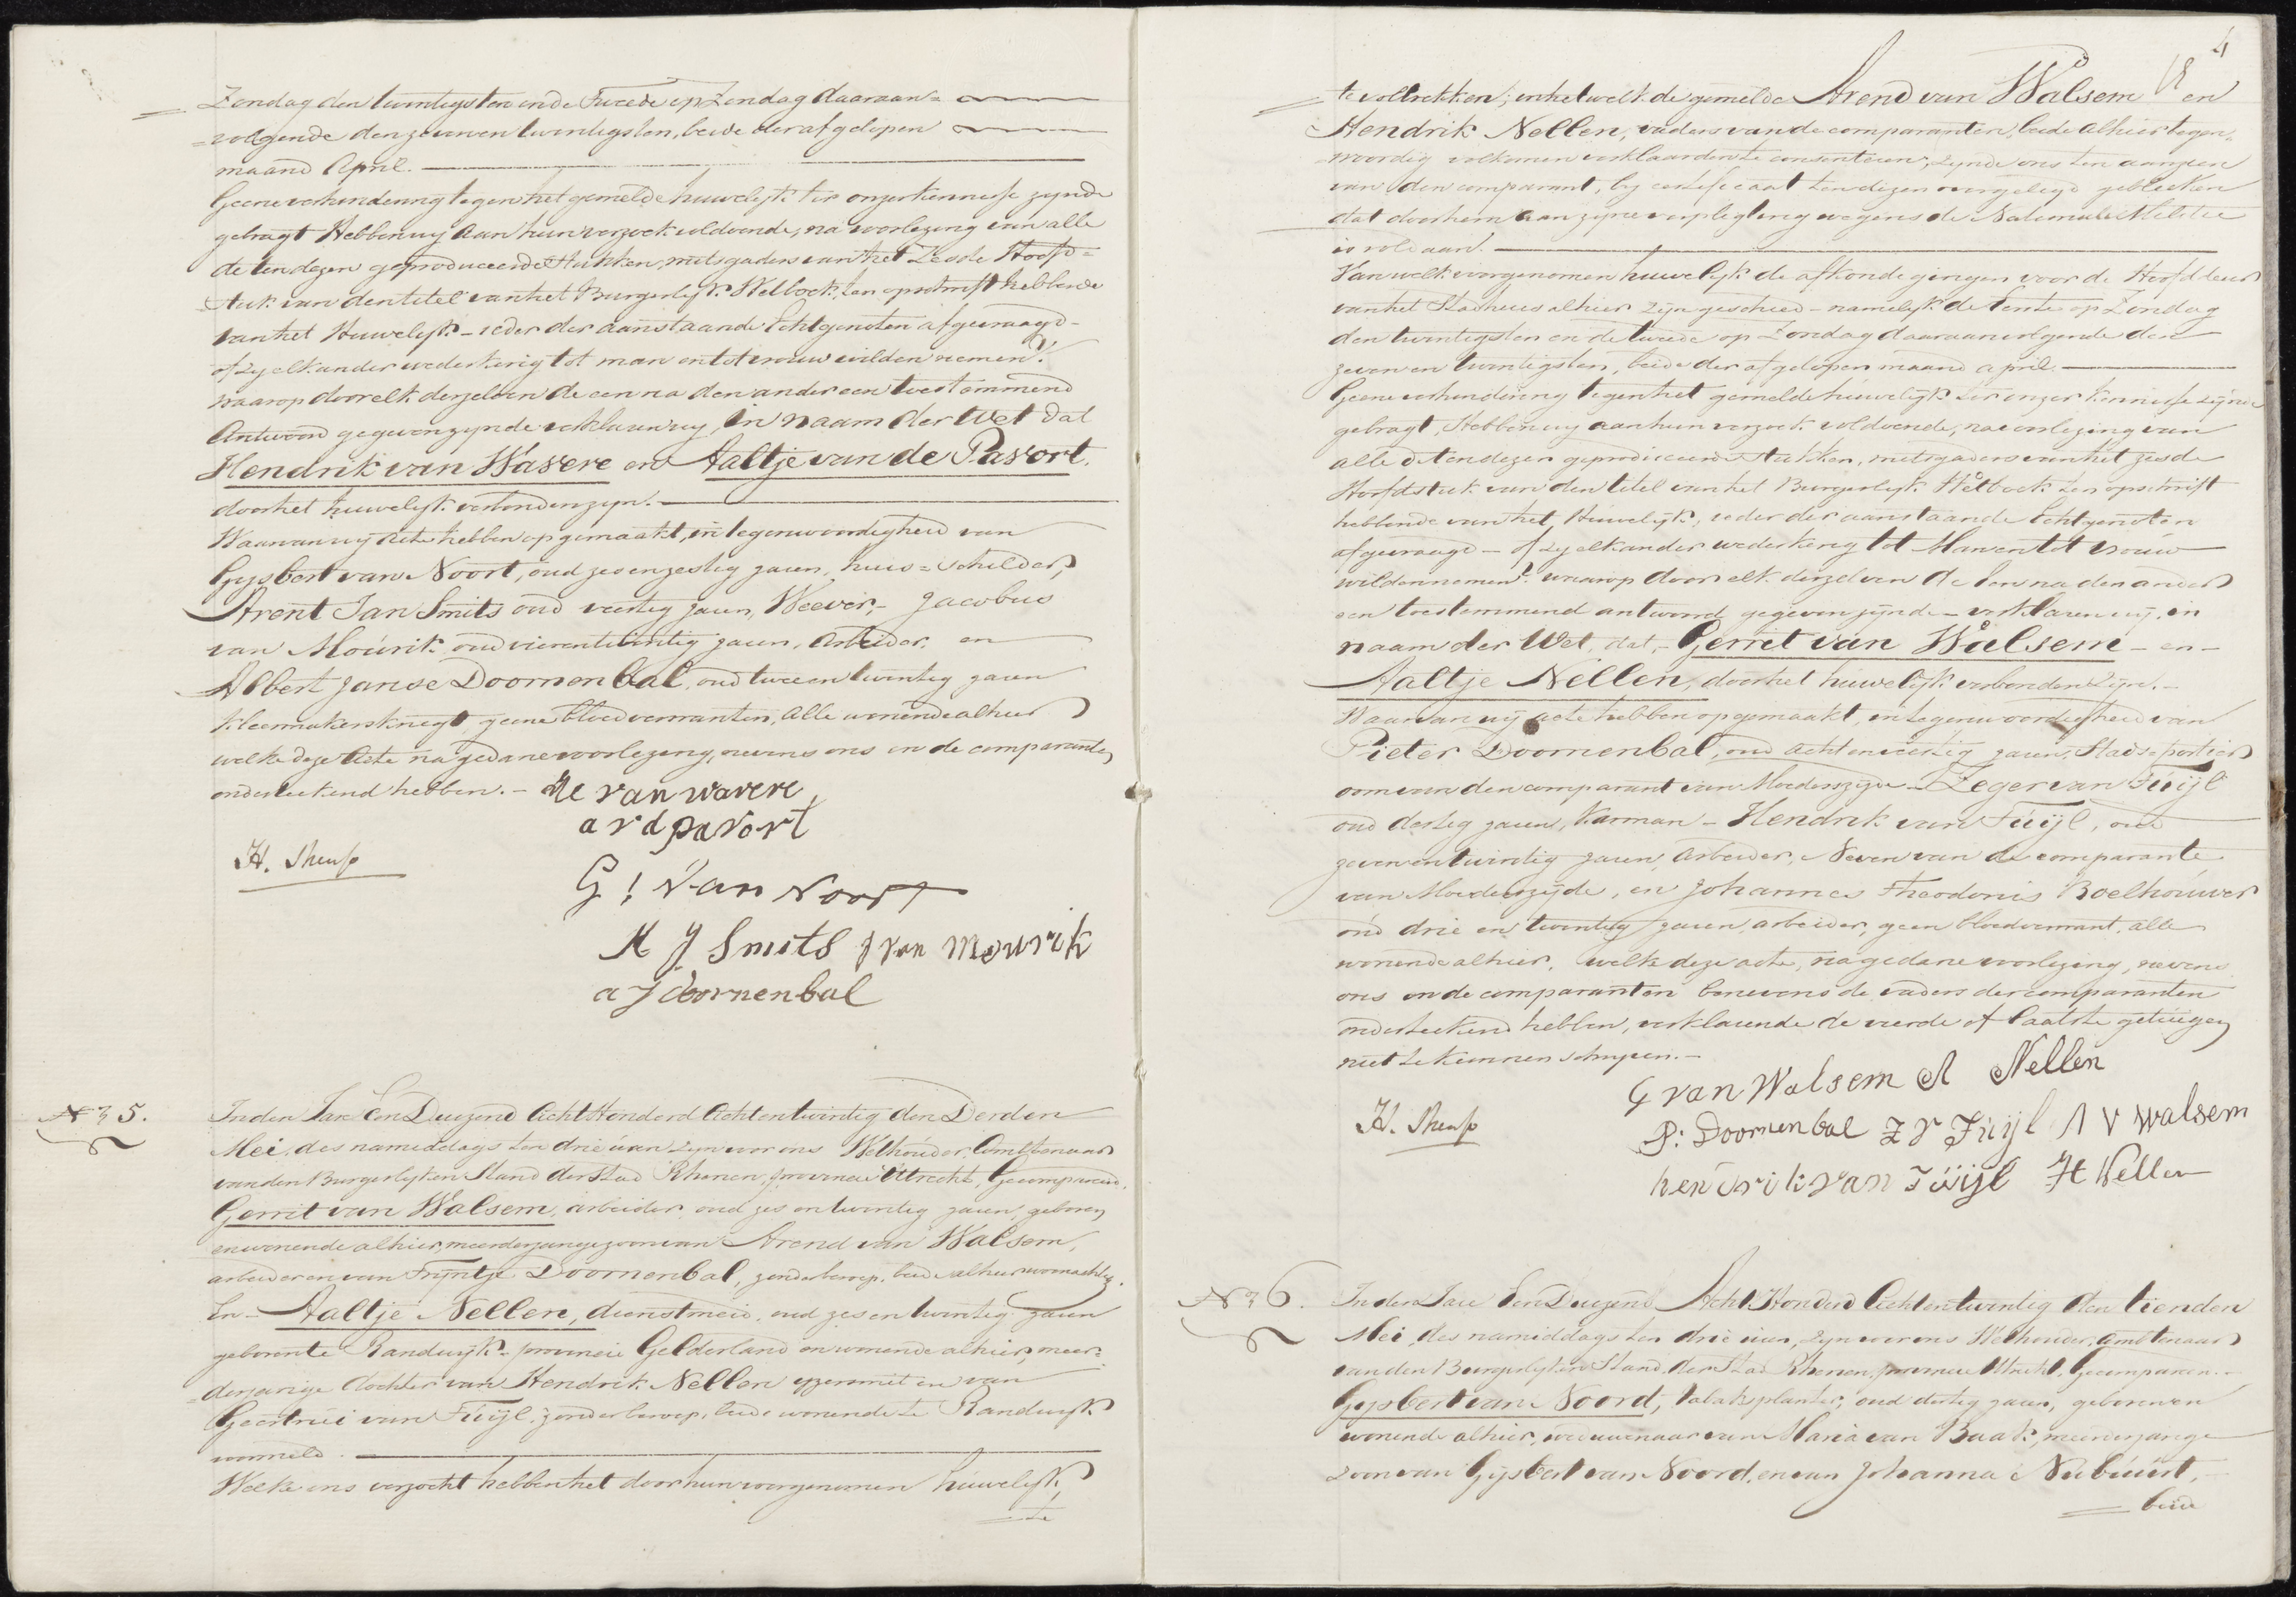 Zondag den twintigsten en de Tweede op Zondag daaraan=
=volgende den zeven en twintigsten, beide der afgelopen
maand April.
Geene verhindering tegen het gemelde huwelijk ter onzer kennisse zynde
gebragt Hebben wy aan hun verzoek voldoende, na voorlezing van alle
de ten dezen geproduceerde Stukken, mitsgaders van het Zesde Hoofd=
stuk van den titel van het Burgerlyk Wetboek, ten opschrift hebbende
van het Huwelyk – ieder der aanstaande Echtgenoten afgevraagd –
of zy elkander wederkerig tot man en tot vrouw wilden nemen?
waarop door elk derzelven de een na den ander een toestemmend
Antwoord gegeven zynde verklaaren wy, in naam der Wet dat
Hendrik van Wavere en Aaltje van de Pavort.
door het huwelyk verbonden zyn. –
Waarvan wy Acte hebben opgemaakt, in tegenwoordigheid van
Gysbert van Noort, oud zes en zestig jaren, huis=schilder,
Arent Jan Smits oud veertig jaren, Weever, – Jacobus
van Mourik oud vier en twintig jaren, Arbeider. en
Albert Janse Doornenbal, oud twee en twintig jaren
kleermakersknegt, geene bloedverwanten, Alle wonende alhier
welke deze Acte na gedane voorlezing, nevens ons en de comparanten
onderteekend hebben. – He van wavere
a v d pavort
H. Menso
G: Van Noort
A J Smits J van Mourik
a J doornenbal
No 5.
In den Jare Een Duizend Acht Honderd Acht en twintig den Derden
Mei, des namiddags ten drie uren zyn voor ons Wethouder, Ambtenaar
van den Burgerlyken Stand der Stad Rhenen, provincie Utrecht, Gecompareerd.
Gerrit van Walsem, arbeider oud zes en twintig jaren, geboren
en wonende alhier, meerderjarige zoon van Arend van Walsem,
arbeider en van Tryntje Doornenbal, zonder beroep, beide alhier woonachtig.
En – Aaltje Nellen, dienstmeid, oud zes en twintig jaren
geboren te Randwyk – provincie Gelderland en wonende alhier, meer=
=derjarige dochter van Hendrik Nellen yzersmit en van
Geertrui van Tuijl, zonder beroep, beide wonende te Randwyk
voormeld.
Welke ons verzocht hebben het door hun voorgenomen huwelyk,
te
4
te voltrekken; en hetwelk de gemelde Arend van Walsem en
Hendrik Nellen, vaders van de comparanten, beide alhier tegen=
=woordig volkomen verklaarden te consenteren, zynde ons ten aanzien
van den comparant, by certificaat ten dezen overgelegd gebleeken
dat door hem aan zyne verpligting wegens de Nationale Militie
is voldaan. –
Van welk voorgenomen huwelyk de afkondigingen voor de Hoofddeur
van het Stadhuis alhier zyn geschied – namelyk de Eerste op Zondag
den twintigsten en de tweede op Zondag daaraanvolgende den
zeven en twintigsten, beide der afgelopen maand april –
Geene verhindering tegen het gemelde huwelyk ter onzer kennisse zynde
gebragt, Hebben wy aan hun verzoek voldoende, na voorlezing van
alle de ten dezen geproduceerde stukken, mitsgaders van het zesde
Hoofdstuk van den titel van het Burgerlyk Wetboek ten opschrift
hebbende van het Huwelyk, ieder der aanstaande Echtgenoten
afgevraagd – of zy elkander wederkerig tot Man en tot vrouw
wilden nemen? waarop door elk derzelven de Een na den ander
een toestemmend antwoord gegeven zynde – verklaren wy, in
naam der Wet, dat, – Gerret van Walsem – en –
Aaltje Nellen, door het huwelyk verbonden zyn. –
Waarvan wy acte hebben opgemaakt, in tegenwoordigheid van
Pieter Doornenbal, oud acht en veertig jaren, Stads=portier
oom van den comparant van Moederszyde – Zeger van Tuijl
oud dertig jaren, Karman – Hendrik van Tuijl, oud
zeven en twintig jaren, arbeider, Neven van de comparante
van Moederszyde, en Johannes Theodorus Roelhouwer
oud drie en twintig jaren, arbeider, geen bloedverwant, alle
wonende alhier, welke deze acte, na gedane voorlezing, nevens
ons en de comparanten benevens de vaders der comparanten
onderteekend hebben, verklarende de vierde of laatste getuigen
niet te kunnen schryven. –
G van Walsem A Nellen
H. Menso
P: Doornenbal Z V Tuijl A V Walsem
hendrik van Tuijl H Nellen
No 6.
In den Jare Een Duizend Acht Honderd Acht en twintig den tienden
Mei, des namiddags ten drie uren, zyn voor ons Wethouder, Ambtenaar
van den Burgerlyken Stand der Stad Rhenen, provincie Utrecht, Gecompareerd. –
Gysbert van Noord, tabaksplanter, oud dertig jaren, geboren en
wonende alhier, weduwenaar van Maria van Baak, meerderjarige
zoon van Gysbert van Noord, en van Johanna Nubuürt, –
beide